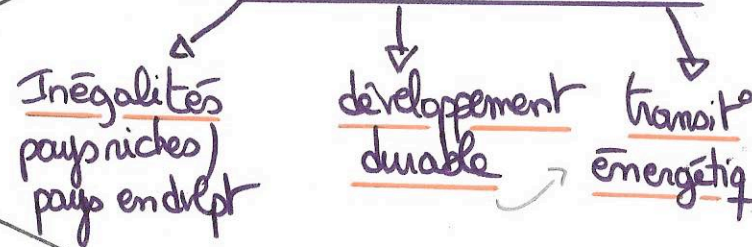 Inégalités
pays riches /
pays en dvlpt
développement
durable
transit°
énergétiq